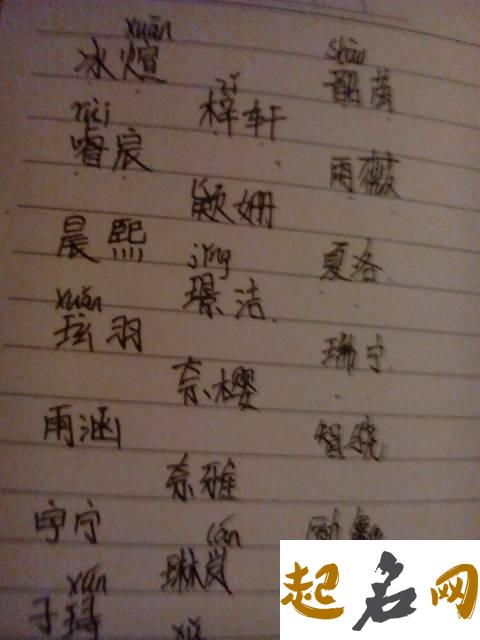 xuān
冰煊
shāo
韶茵
zǐ
梓轩
ruì
睿宸
雨薇
颖姗
晨熙
jǐng
璟洁
夏洛
xuán
玹羽
瑞宁
奈樱
雨涵
智骁
奈雅
宇宁
琳岚
xún
子珺
起名网